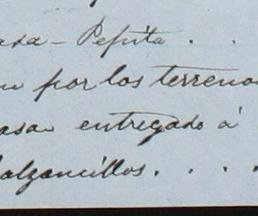 asa - Pepita . .
n por los terrenos
asa entregado á
alzoncillos. . . .